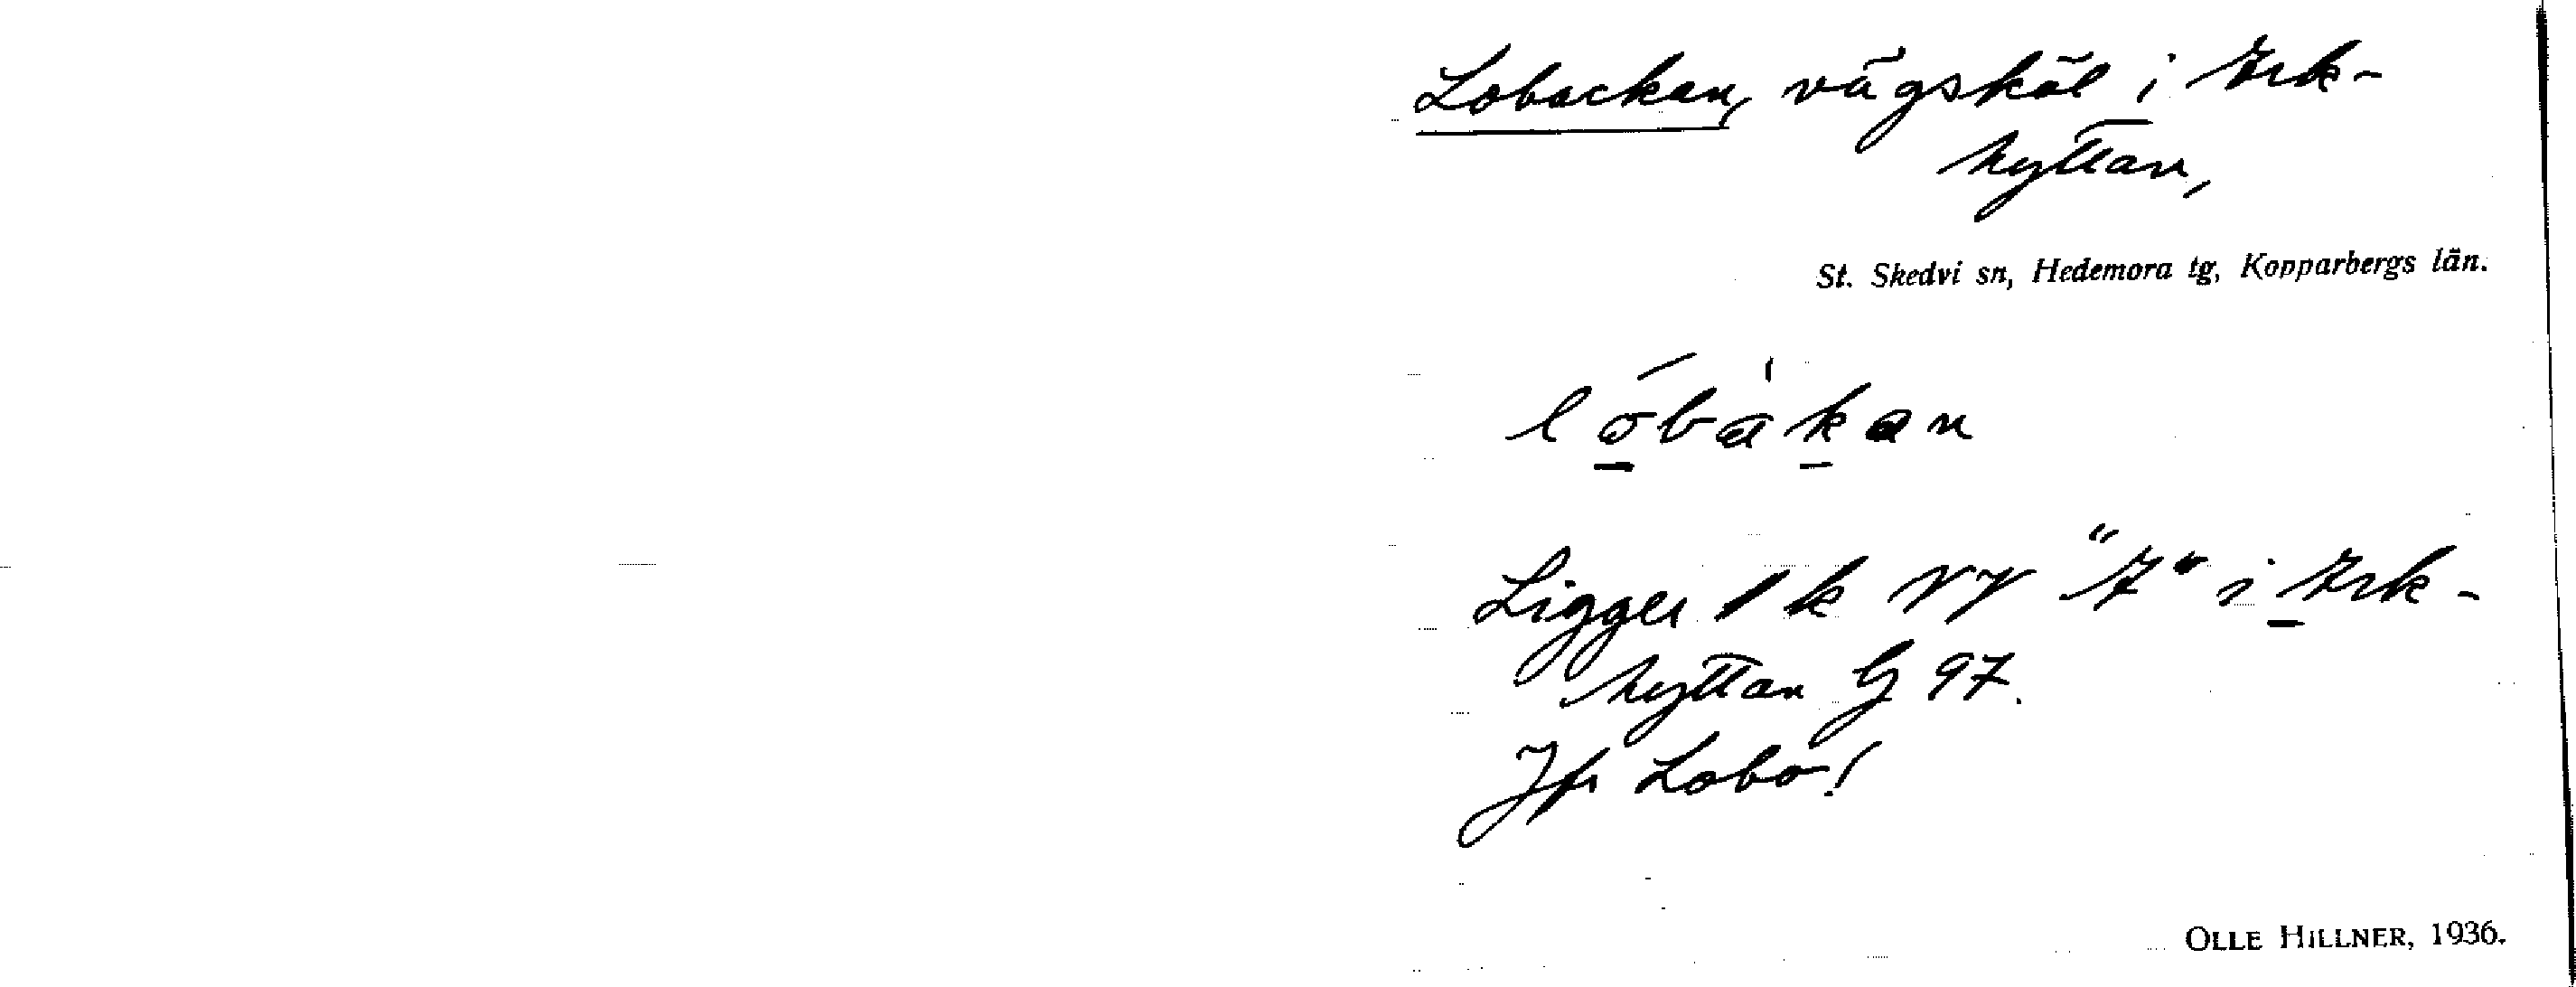 Lobackan, vägskäl i Ark-
hyttan,
St. Skedvi sn, Hedemora tg, Kopparbergs län.
lo̱bak̲an
Ligger 1 k NV "A" i Ark-
hyttan G 97.
Jfr Lobo!
OLLE HILLNER, 1936.